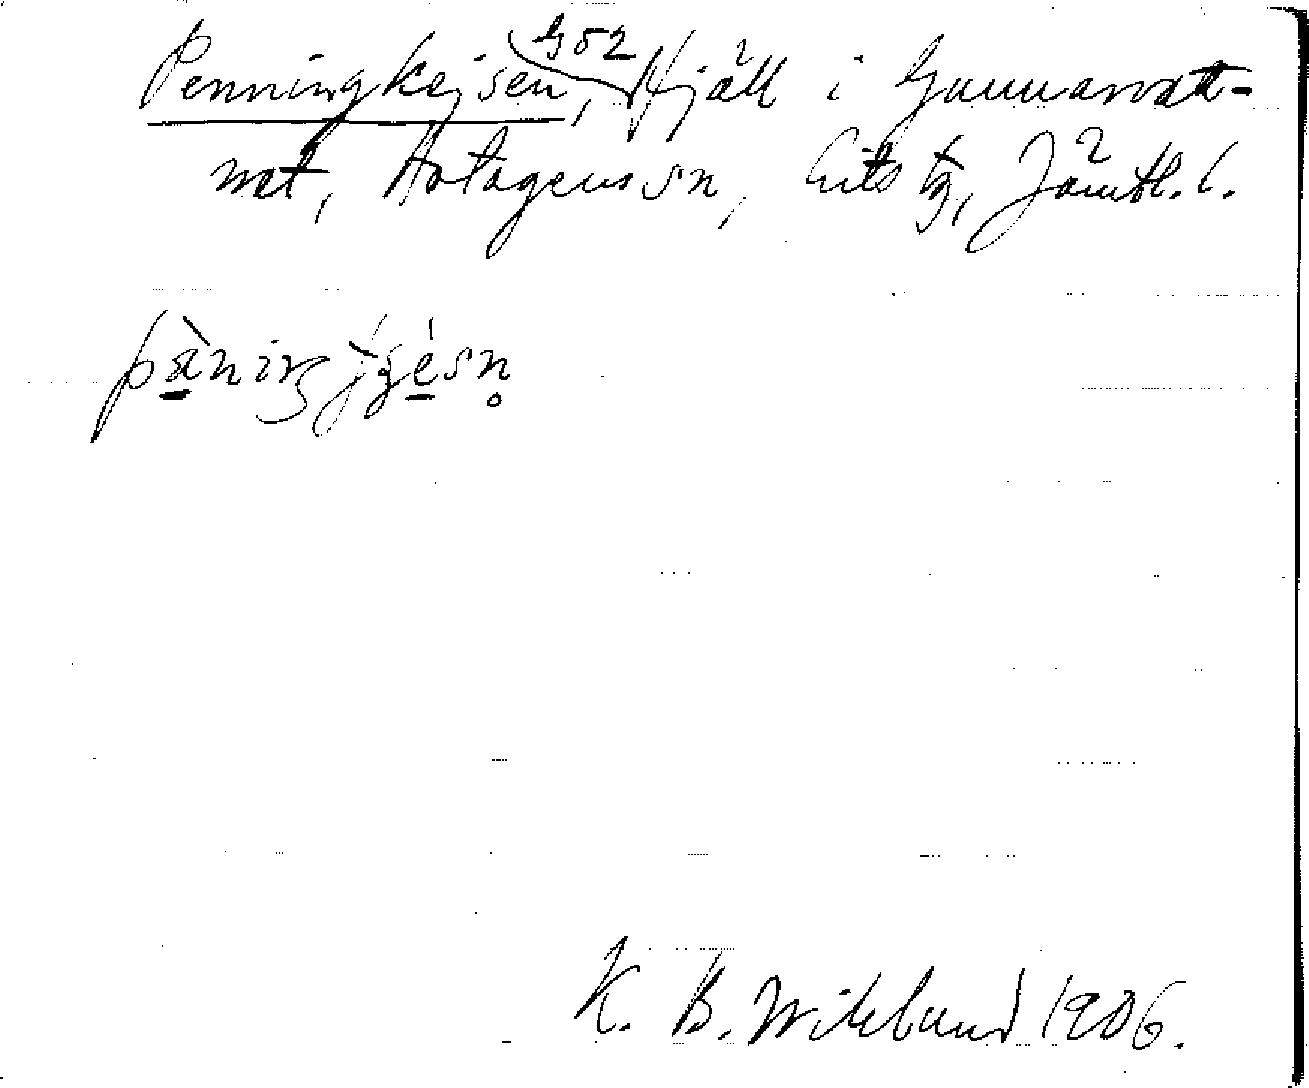 Penningkejsen, 452 fjäll i Gunnarvatt-
net, Hotagens sn, Lits tg, Jämtl. l.
K. B. Wiklund 1906.